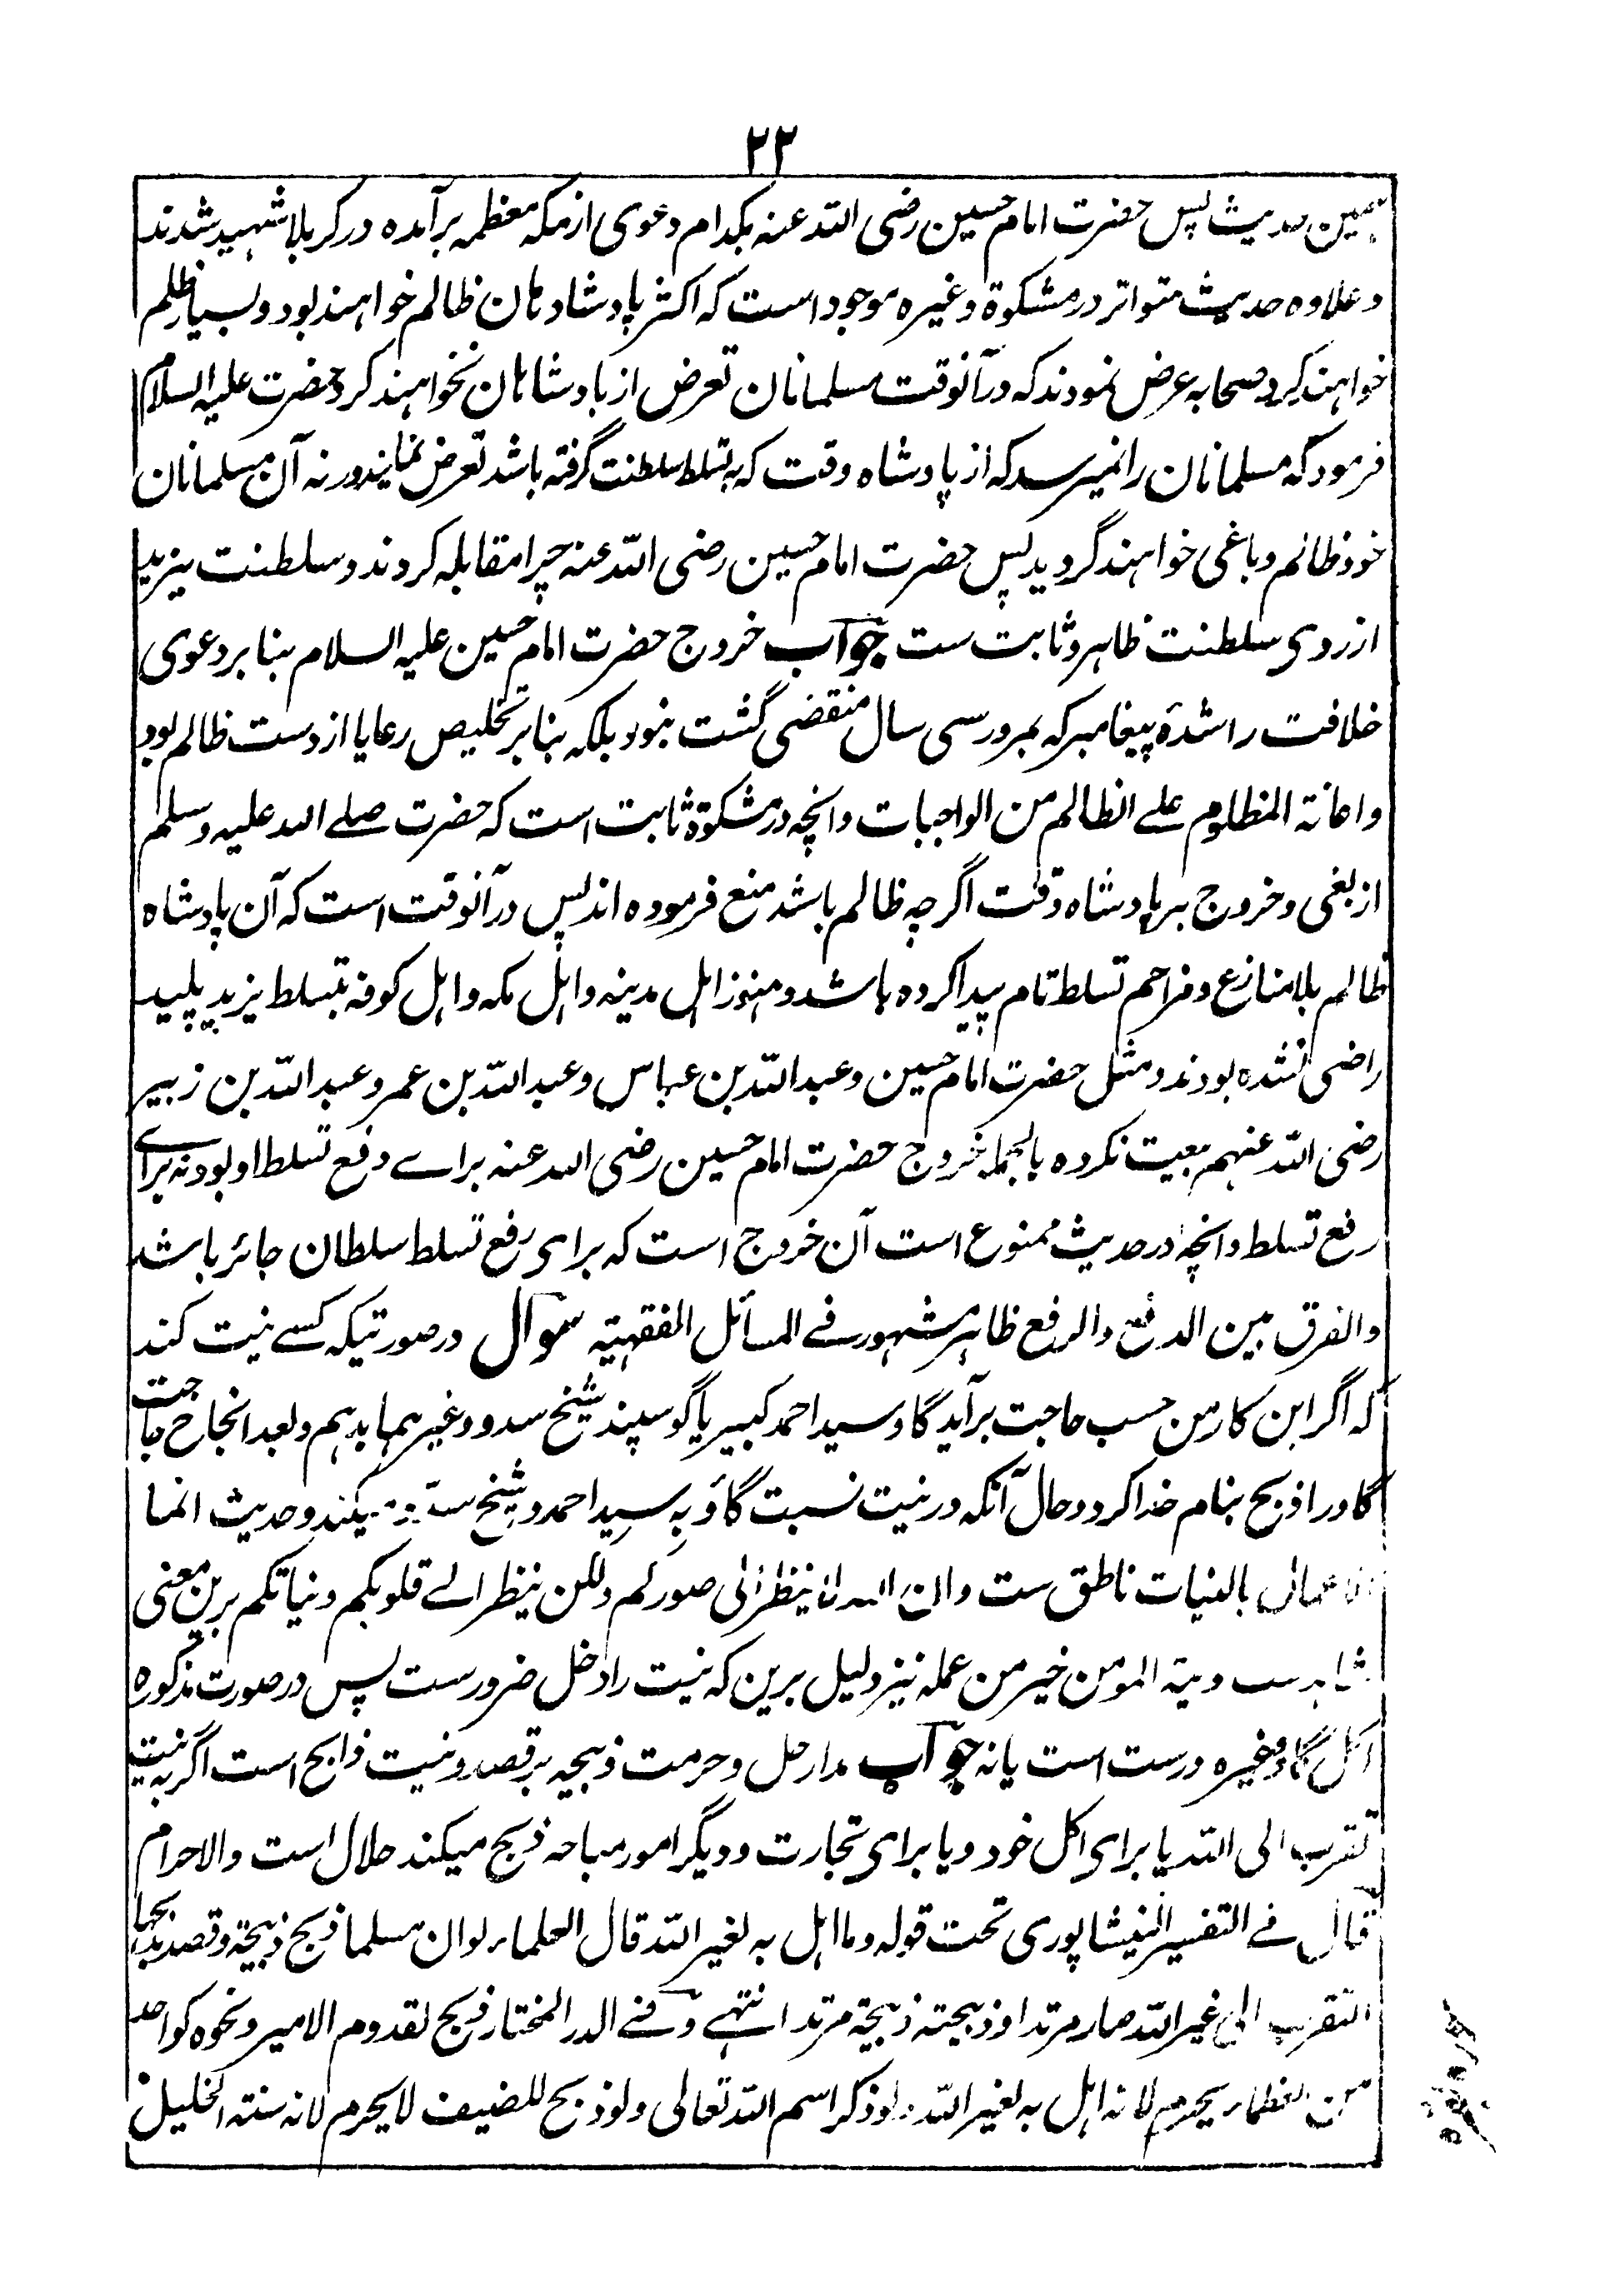 ۲۳
همین حدیث پس حضرت امام حسین رضی الله عنه بکدام دعوی از مکه معظمه برآمده در کربلا شهید شدند
و علاوه حدیث متواتر در مشکوة و غیره موجود است که اکثر پادشاهان ظالم خواهند بود و بسیار ظلم
خواهند کرد صحابه عرض نمودند که در آنوقت مسلمانان تعرض از بادشاهان نخواهند کرد حضرت علیه السلام
فرمود که مسلمانان را نمیرسد که از پادشاه وقت که به تسلط سلطنت گرفته باشد تعرض نمایند ورنه آن مسلمانان
خود ظالم و باغی خواهند گردید پس حضرت امام حسین رضی الله عنه چرا مقابله کردند و سلطنت یزید
از روی سلطنت ظاهر و ثابت ست جواب خروج حضرت امام حسین علیه السلام بنا بر دعوی
خلافت راشدهٔ پیغامبر که بمرور سی سال منقضی گشت نبود بلکه بنا بر تخلیص رعایا از دست ظالم بود
و اعانة المظلوم علی الظالم من الواجبات و انچه در مشکوة ثابت است که حضرت صلے الله علیه وسلم
از بغی و خروج بر پادشاه وقت اگرچه ظالم باشد منع فرموده اند پس در آنوقت است که آن پادشاه
ظالم بلا منازع و مزاحم تسلط تام پیدا کرده باشد و هنوز اهل مدینه و اهل مکه و اهل کوفه بتسلط یزید پلید
راضی نشده بودند و مثل حضرت امام حسین و عبدالله بن عباس و عبدالله بن عمر و عبدالله بن زبیر
رضی الله عنهم بیعت نکرده بالجمله خروج حضرت امام حسین رضی الله عنه براے دفع تسلط او بود نه براے
رفع تسلط و انچه در حدیث ممنوع است آن خروج است که برای رفع تسلط سلطان جائر باشد
والفرق بین الدفع والرفع ظاهر مشهور فے المسائل الفقهیة سوال در صورتیکه کسے نیت کند
که اگر این کار من حسب حاجت برآید گاو سید احمد کبیر یا گوسپند شیخ سدو و غیرهما بدهم و بعد انجاح حاجت
گاو را ذبح بنام خدا کرد و حال آنکه در نیت نسبت گاو به سید احمد و شیخ سدو میکند و حدیث انما
الاعمال بالنیات ناطق ست و ان الله لا ینظر الی صورکم ولکن ینظر الے قلوبکم و نیاتکم برین معنی
شاهد ست و نیة المومن خیر من عمله نیز دلیل برین که نیت را دخل ضرورست پس در صورت مذکوره
اکل گاو وغیره درست است یا نه جواب مدار حل و حرمت ذبیحه بر قصد و نیت ذابح است اگر به نیت
تقرب الی الله یا برای اکل خود و یا برای تجارت و دیگر امور مباحه ذبح میکند حلال است والا حرام
قال فے التفسیر النیشاپوری تحت قوله وما اهل به لغیر الله قال العلماء لو ان مسلما ذبح ذبیحة وقصد بذبحها
التقرب الی غیر الله صار مرتدا وذبیحته ذبیحة مرتد انتهے وفے الدر المختار ذبح لقدوم الامیر ونحوه کواحد
من العظماء یحرم لانه اهل به لغیر الله ولو ذکر اسم الله تعالی ولو ذبح للضیف لا یحرم لانه سنة الخلیل